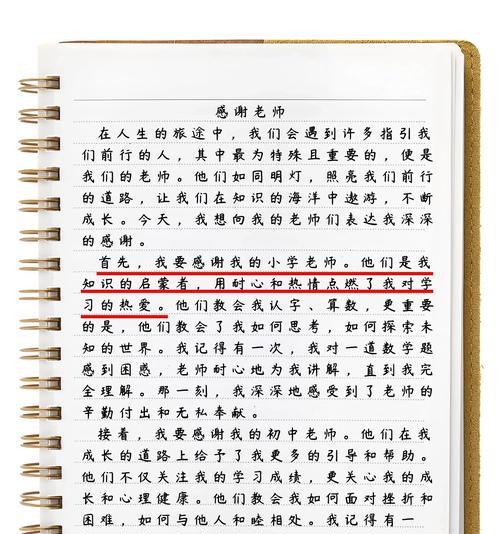 感谢老师
在人生的旅途中，我们会遇到许多指引我
们前行的人，其中最为特殊且重要的，便是
我们的老师。他们如同明灯，照亮我们前行
的道路，让我们在知识的海洋中遨游，不断
成长。今天，我想向我的老师们表达我深深
的感谢。
首先，我要感谢我的小学老师。他们是我
知识的启蒙者，用耐心和热情点燃了我对学
习的热爱。他们教会我认字、算数，更重要
的是，他们教会了我如何思考，如何探索未
知的世界。我记得有一次，我对一道数学题
感到困惑，老师耐心地为我讲解，直到我完
全理解。那一刻，我深深地感受到了老师的
辛勤付出和无私奉献。
接着，我要感谢我的初中老师。他们在我
成长的道路上给予了我更多的引导和帮助。
他们不仅关注我的学习成绩，更关心我的成
长和心理健康。他们教会我如何面对挫折和
困难，如何与他人和睦相处。我记得有一